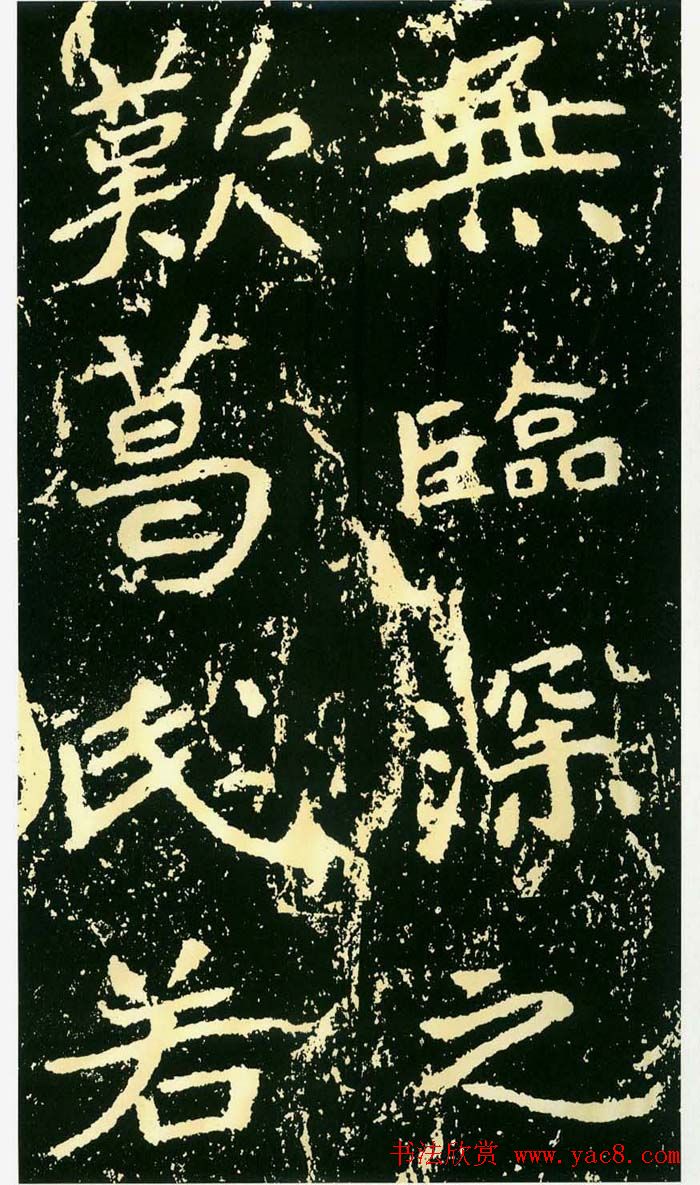 無臨深之
歎葛氏若
书法欣赏 www.yac8.com